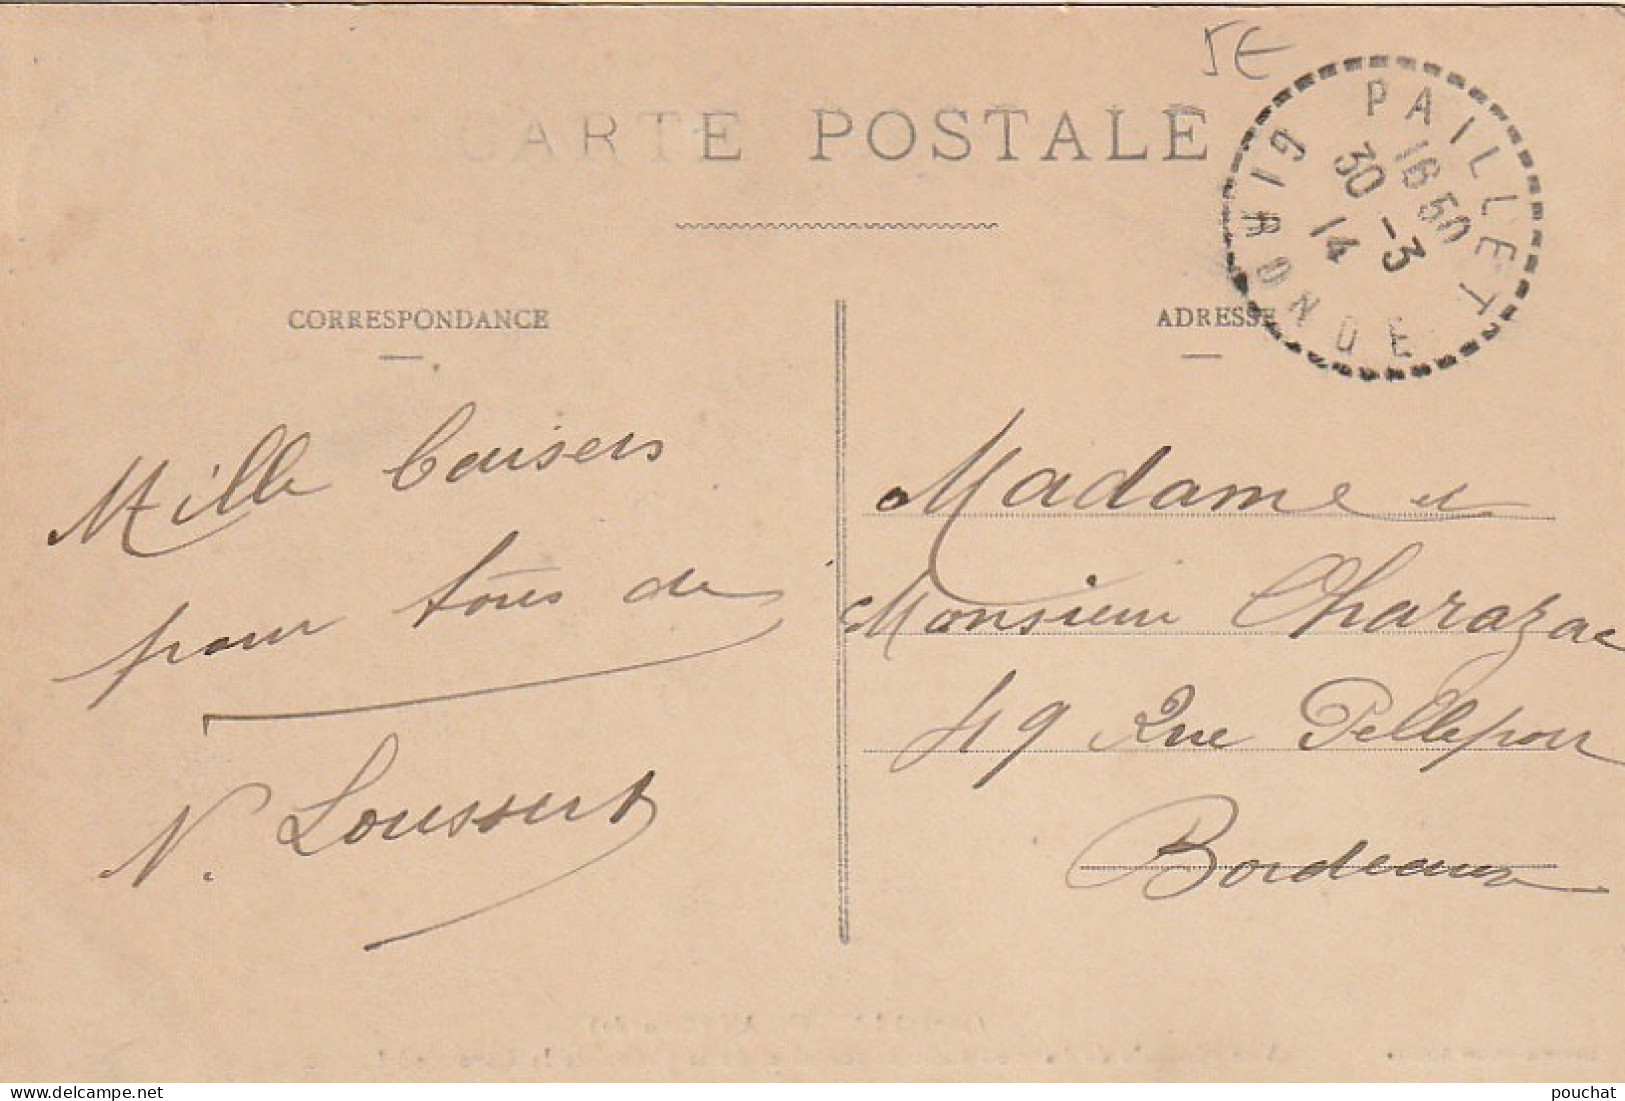 5€
CARTE POSTALE
PAILLET
16 50
30 -3
14
GIRONDE
CORRESPONDANCE
ADRESSE
Mille baisers
pour tous de
N. Loussert
Madame et
Monsieur Charazac
49 Rue Pelleport
Bordeaux
pouchat